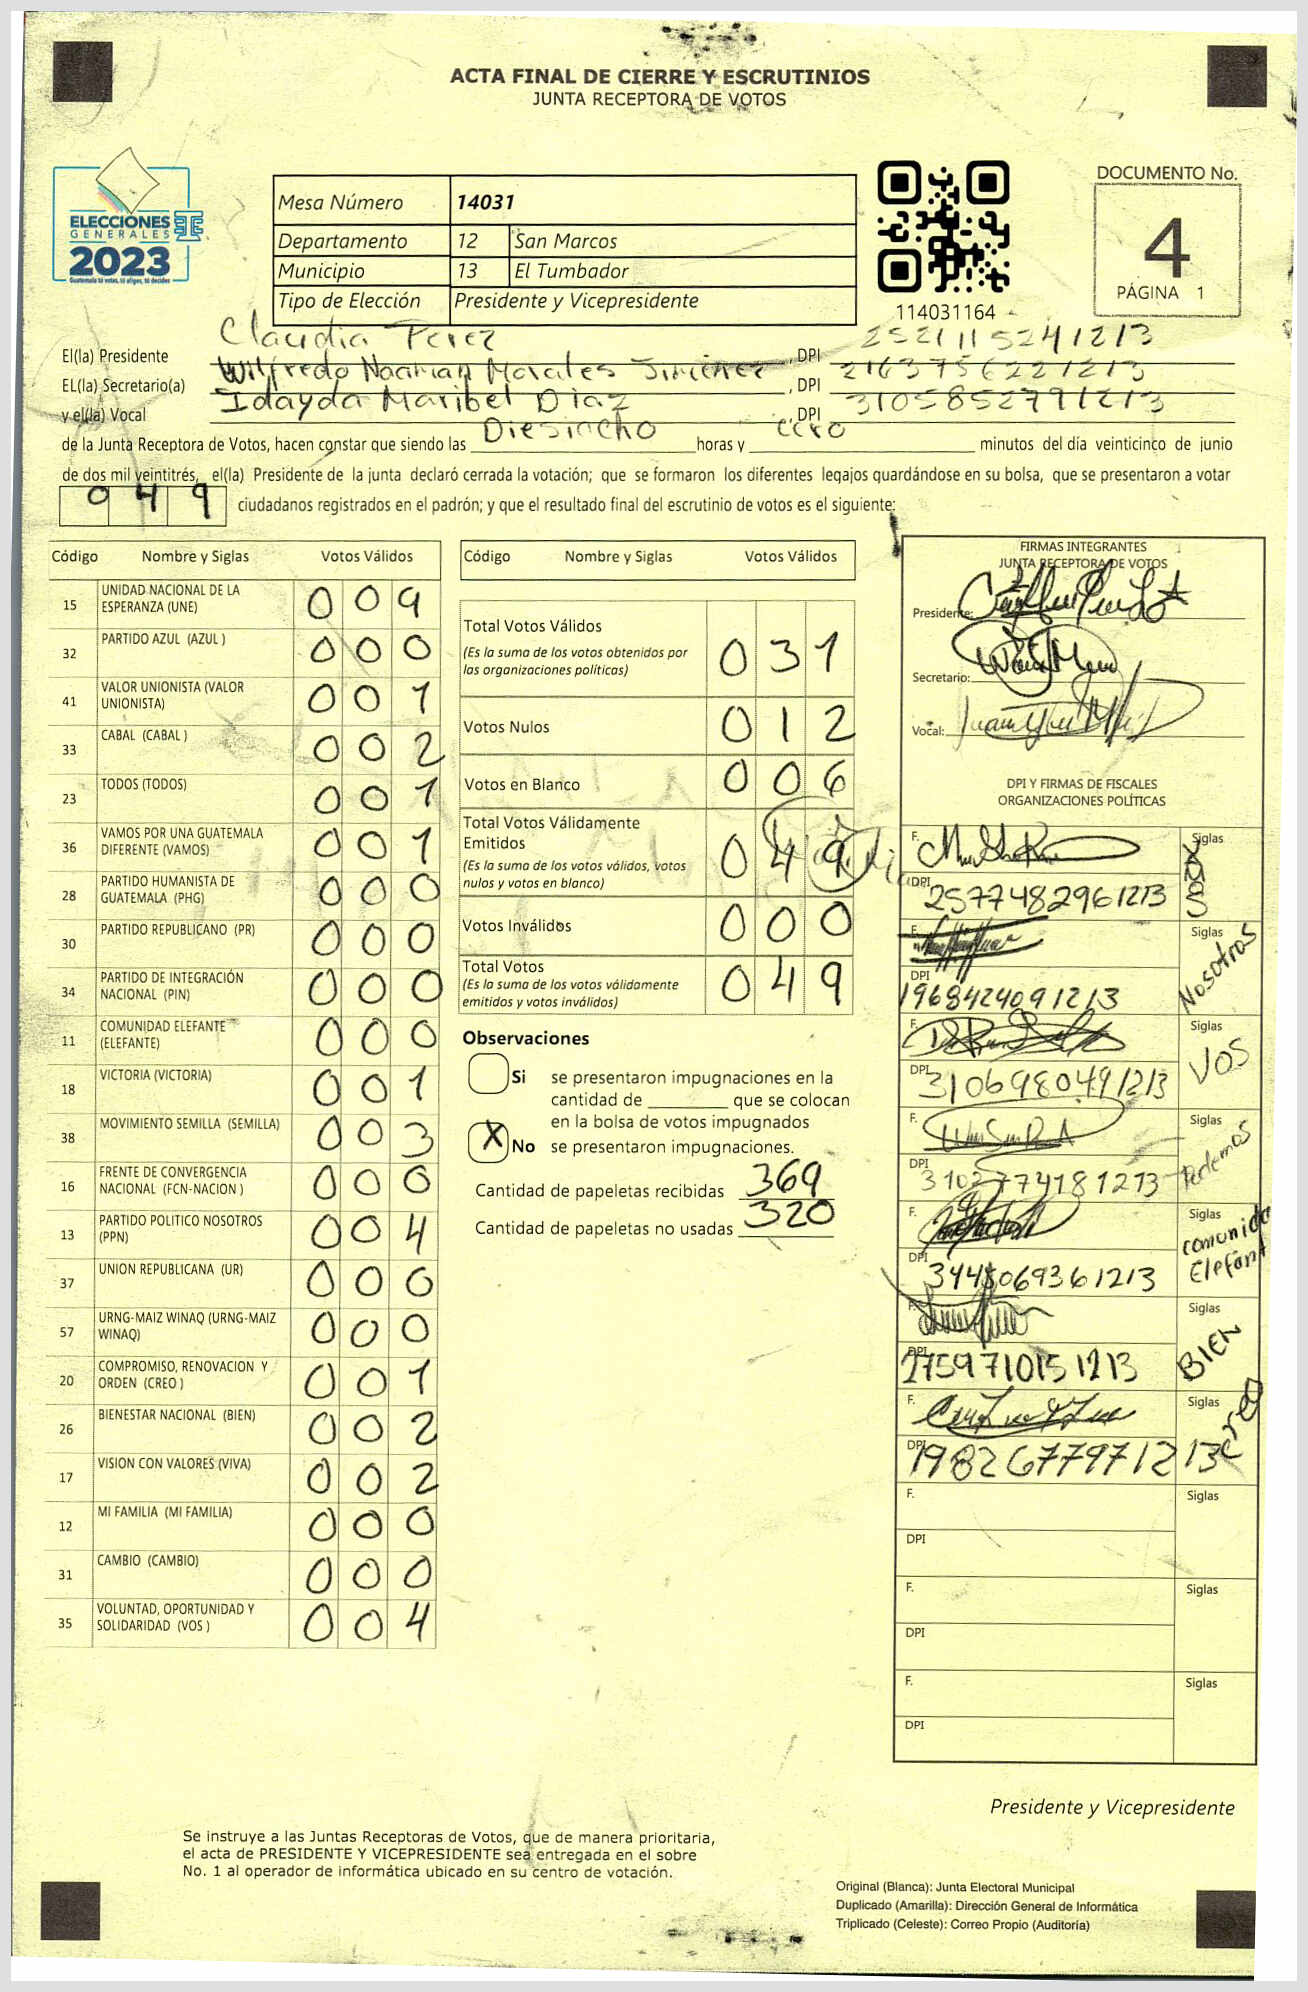 ACTA FINAL DE CIERRE Y ESCRUTINIOS
JUNTA RECEPTORA DE VOTOS
ELECCIONES
GENERALES
2023
Guatemala tú votas, tú eliges, tú decides
Mesa Número 14031
Departamento 12 San Marcos
Municipio 13 El Tumbador
Tipo de Elección Presidente y Vicepresidente
114031164
DOCUMENTO No.
4
PÁGINA 1
El(la) Presidente Claudia Perez, DPI 2521115241213
EL(la) Secretario(a) Wilfredo Naaman Morales Jimenez, DPI 2163756221213
y el(la) Vocal Idayda Maribel Diaz, DPI 3105852791213
de la Junta Receptora de Votos, hacen constar que siendo las Diesiocho horas y cero minutos del día veinticinco de junio
de dos mil veintitrés, el(la) Presidente de la junta declaró cerrada la votación; que se formaron los diferentes legajos guardándose en su bolsa, que se presentaron a votar
049 ciudadanos registrados en el padrón; y que el resultado final del escrutinio de votos es el siguiente:
Código Nombre y Siglas Votos Válidos
15 UNIDAD NACIONAL DE LA ESPERANZA (UNE) 009
32 PARTIDO AZUL (AZUL ) 000
41 VALOR UNIONISTA (VALOR UNIONISTA) 001
33 CABAL (CABAL ) 002
23 TODOS (TODOS) 001
36 VAMOS POR UNA GUATEMALA DIFERENTE (VAMOS) 001
28 PARTIDO HUMANISTA DE GUATEMALA (PHG) 000
30 PARTIDO REPUBLICANO (PR) 000
34 PARTIDO DE INTEGRACIÓN NACIONAL (PIN) 000
11 COMUNIDAD ELEFANTE (ELEFANTE) 000
18 VICTORIA (VICTORIA) 001
38 MOVIMIENTO SEMILLA (SEMILLA) 003
16 FRENTE DE CONVERGENCIA NACIONAL (FCN-NACION ) 000
13 PARTIDO POLITICO NOSOTROS (PPN) 004
37 UNION REPUBLICANA (UR) 000
57 URNG-MAIZ WINAQ (URNG-MAIZ WINAQ) 000
20 COMPROMISO, RENOVACION Y ORDEN (CREO ) 001
26 BIENESTAR NACIONAL (BIEN) 002
17 VISION CON VALORES (VIVA) 002
12 MI FAMILIA (MI FAMILIA) 000
31 CAMBIO (CAMBIO) 000
35 VOLUNTAD, OPORTUNIDAD Y SOLIDARIDAD (VOS ) 004
Código Nombre y Siglas Votos Válidos
Total Votos Válidos 031
(Es la suma de los votos obtenidos por
las organizaciones políticas)
Votos Nulos 012
Votos en Blanco 006
Total Votos Válidamente
Emitidos 049
(Es la suma de los votos válidos, votos
nulos y votos en blanco)
Votos Inválidos 000
Total Votos 049
(Es la suma de los votos válidamente
emitidos y votos inválidos)
Observaciones
Si se presentaron impugnaciones en la
cantidad de ________ que se colocan
en la bolsa de votos impugnados
X No se presentaron impugnaciones.
Cantidad de papeletas recibidas 369
Cantidad de papeletas no usadas 320
FIRMAS INTEGRANTES
JUNTA RECEPTORA DE VOTOS
Presidente:
Secretario:
Vocal:
DPI Y FIRMAS DE FISCALES
ORGANIZACIONES POLÍTICAS
F. Siglas
DPI 2577482961213
F. Siglas Nosotros
DPI 1968424091213
F. Siglas VOS
DPI 3106980491213
F. Siglas Podemos
DPI 3102774181213
F. Siglas comunida Elefant
DPI 3448069361213
F. Siglas BIEN
DPI 2759710151213
F. Siglas creo
DPI 1982677971213
F. Siglas
DPI
F. Siglas
DPI
F. Siglas
DPI
Presidente y Vicepresidente
Se instruye a las Juntas Receptoras de Votos, que de manera prioritaria,
el acta de PRESIDENTE Y VICEPRESIDENTE sea entregada en el sobre
No. 1 al operador de informática ubicado en su centro de votación.
Original (Blanca): Junta Electoral Municipal
Duplicado (Amarilla): Dirección General de Informática
Triplicado (Celeste): Correo Propio (Auditoría)